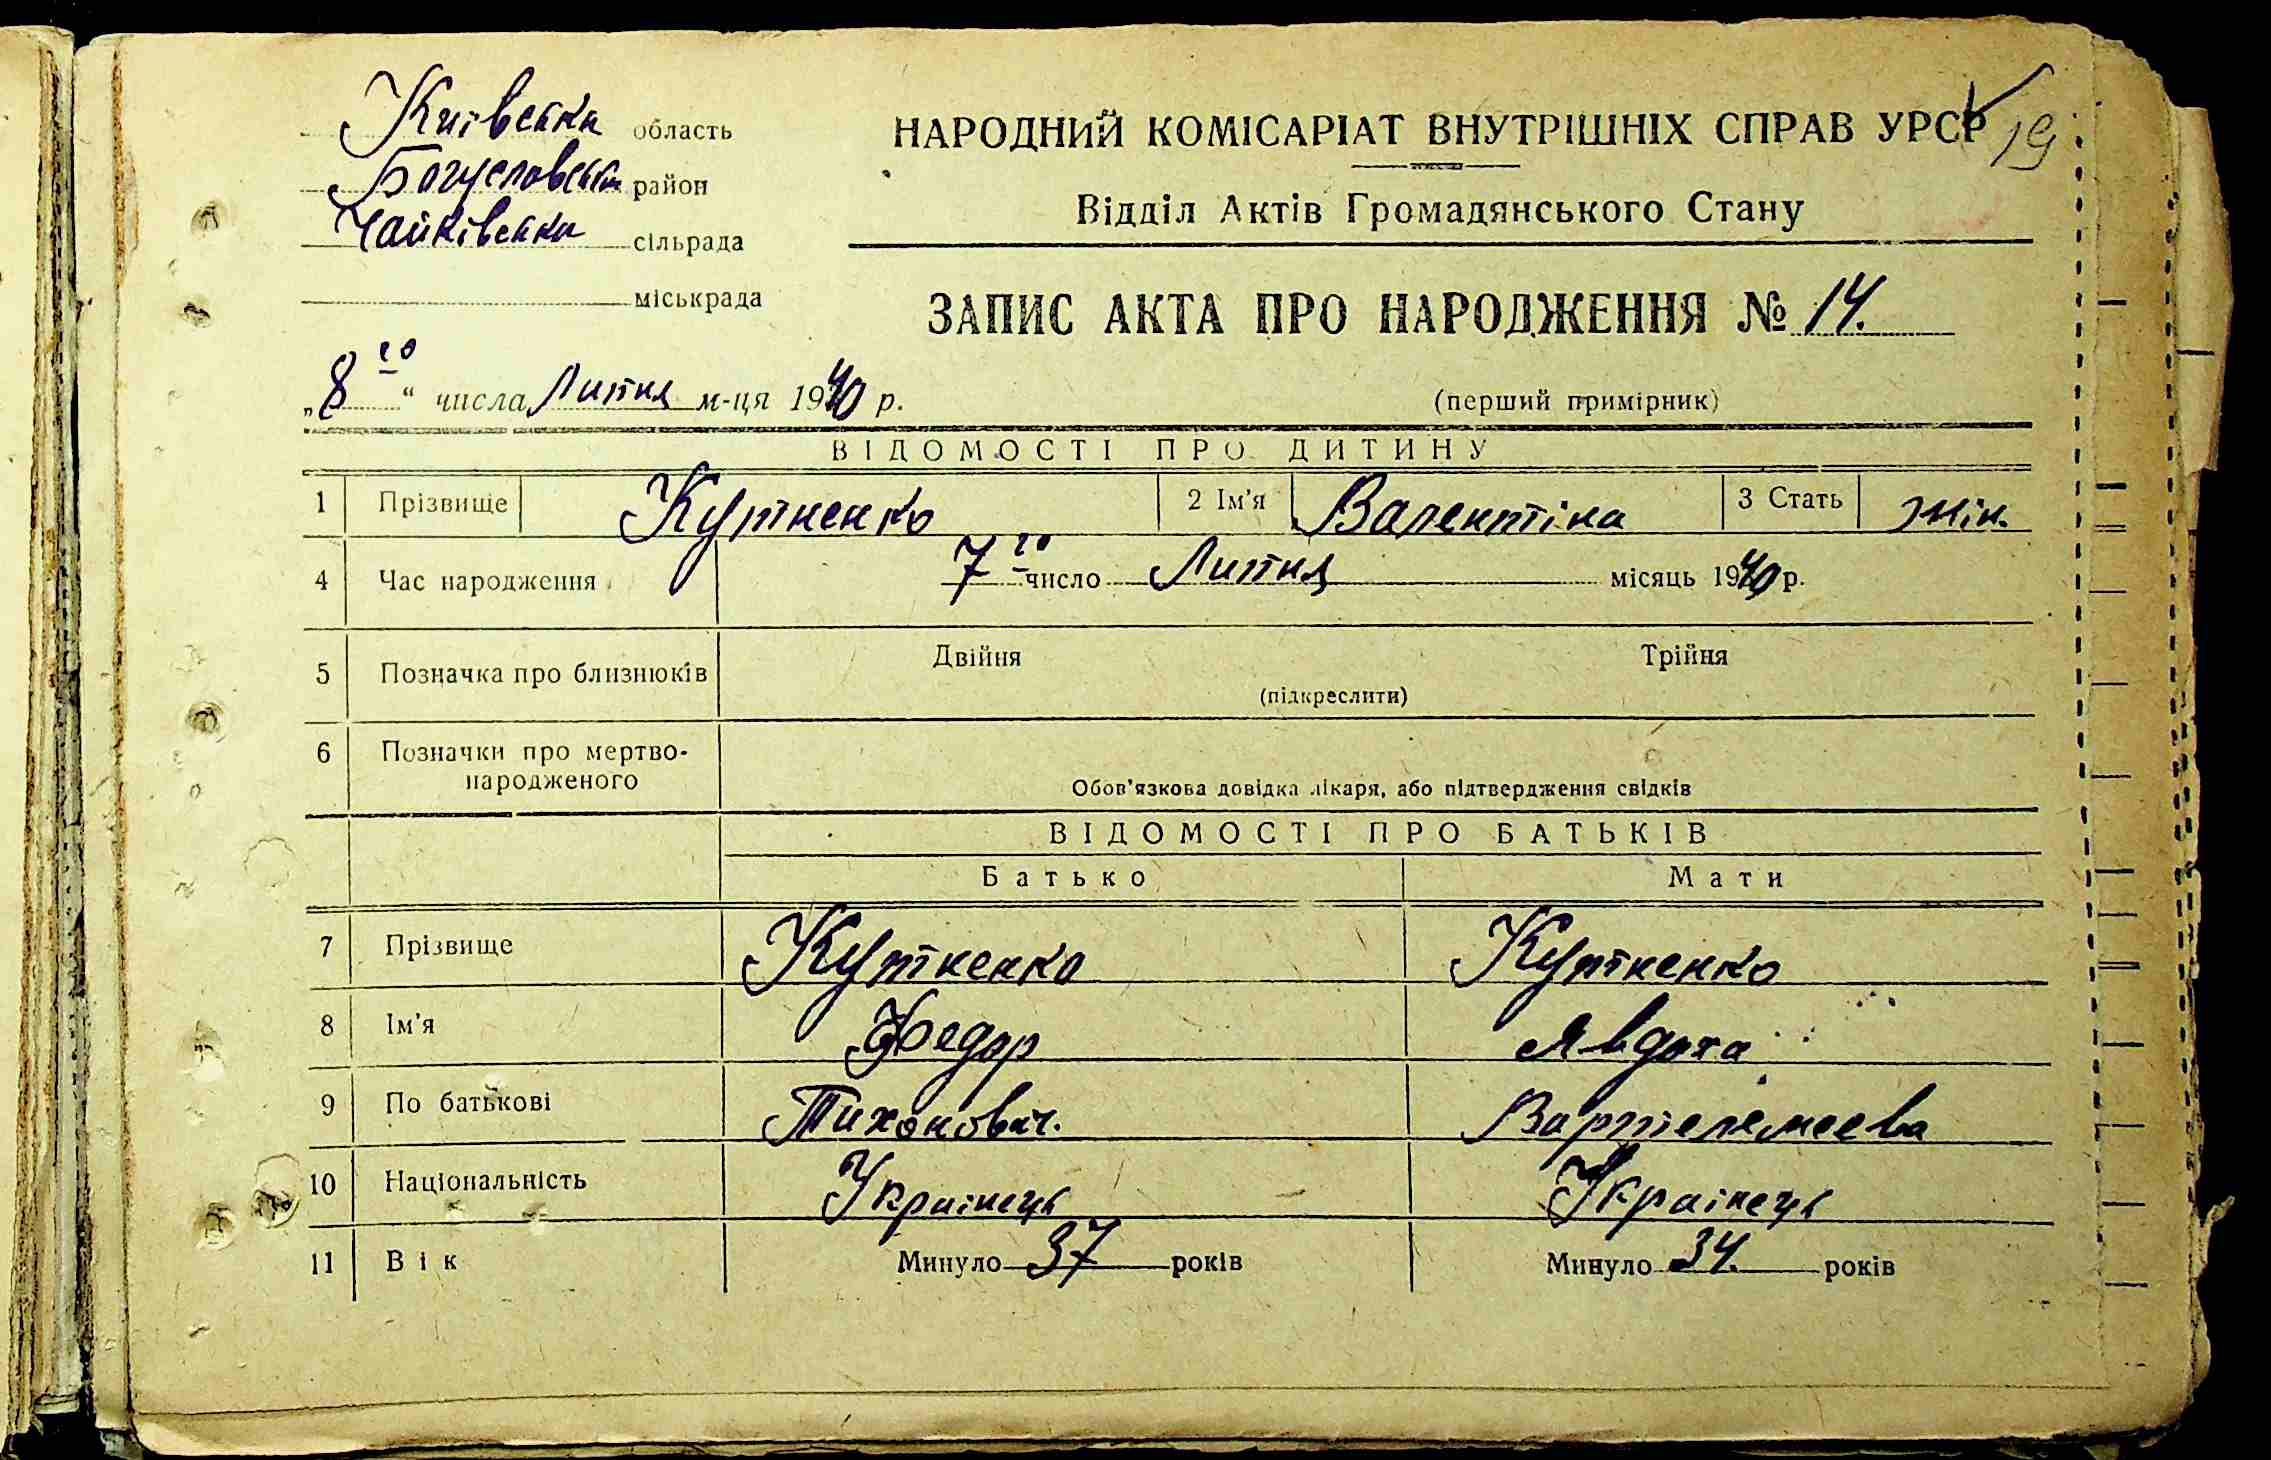 Київська область
Богуславська район
Чайківська сільрада
міськрада
НАРОДНИЙ КОМІСАРІАТ ВНУТРІШНІХ СПРАВ УРСР 19
Відділ Актів Громадянського Стану
ЗАПИС АКТА ПРО НАРОДЖЕННЯ № 14.
„8го“ числа Липня м-ця 1940 р.
(перший примірник)
ВІДОМОСТІ ПРО ДИТИНУ
1 Прізвище Кутненко 2 Ім'я Валентіна 3 Стать жін.
4 Час народження 7го число Липня місяць 1940 р.
5 Позначка про близнюків Двійня Трійня
(підкреслити)
6 Позначки про мертво-
народженого
Обов'язкова довідка лікаря, або підтвердження свідків
ВІДОМОСТІ ПРО БАТЬКІВ
Батько Мати
7 Прізвище Кутненко Кутненко
8 Ім'я Федор Явдоха
9 По батькові Тихонович. Вартелемеева
10 Національність Українець Українець
11 Вік Минуло 37 років Минуло 34. років